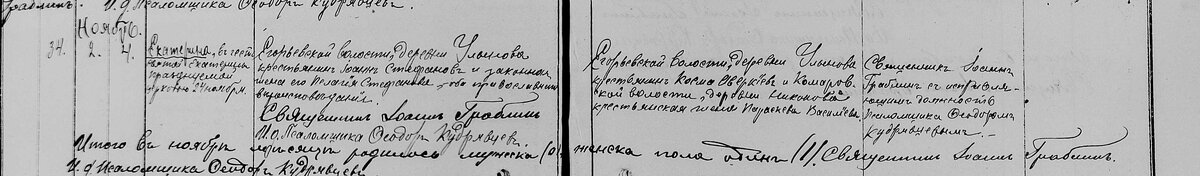 И. д. Псаломщика Ѳеодоръ Кудрявцевъ.
Ноябрь.
34. 2. 4. Екатерина, въ честь
Екатерины
празднуемой
24 ноября.
Егорьевской волости, деревни
крестьянинъ Іоаннъ Стефановъ и законная
жена его Пелагія Стефанова, оба православнаго
вѣроисповѣданія.
Священникъ Іоаннъ Граблинъ
И. о. Псаломщика Ѳеодоръ Кудрявцевъ.
Егорьевской волости, деревни
крестьянинъ Косма Аверкіевъ и Комаров-
ской волости, деревни Никонова
крестьянская жена Параскева Васильева
Священникъ Іоаннъ
Граблинъ съ исправля-
ющимъ должность
Псаломщика Ѳеодоромъ
Кудрявцевымъ.
Итого въ ноябрѣ мѣсяцѣ родилось мужска (0) женска пола одинъ (1) Священникъ Іоаннъ Граблинъ.
И. д. Псаломщика Ѳеодоръ Кудрявцевъ